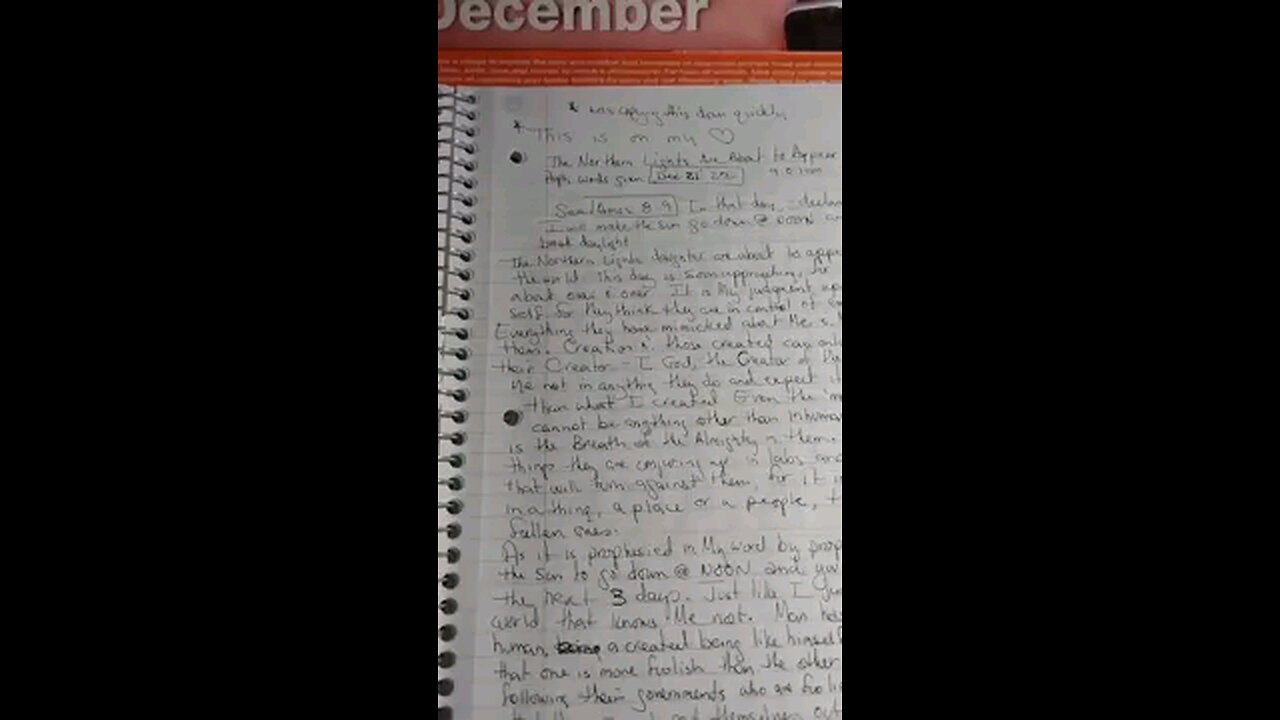 December
* was copying this down quickly
* This is on my
The Northern Lights Are About to Appear
words given Dec 21
8 9 In that day, declar
I will make the sun go down @ NOON an
daylight
The Northern Lights daughter are about to appe
the world. This day is soon approaching, for
about over & over. It is My judgment upo
self for they think they are in control of
Everything they have mimicked about Me is
them. Creation & those created can only
their Creator - I God, the Creator of
Me not in anything they do and expect it
than what I created Even the
cannot be anything other than inhuman
is the Breath of the Almighty in them.
things they are conjuring up in labs and
that will turn against them, for it is
in a thing, a place or a people, t
fallen ones.
As it is prophesied in My Word by prop
the sun to go down @ NOON and
the next 3 days. Just like I
world that knows Me not. Man has
human, being a created being like himself
that one is more foolish than the other
following their governments who are fooli
and themselves